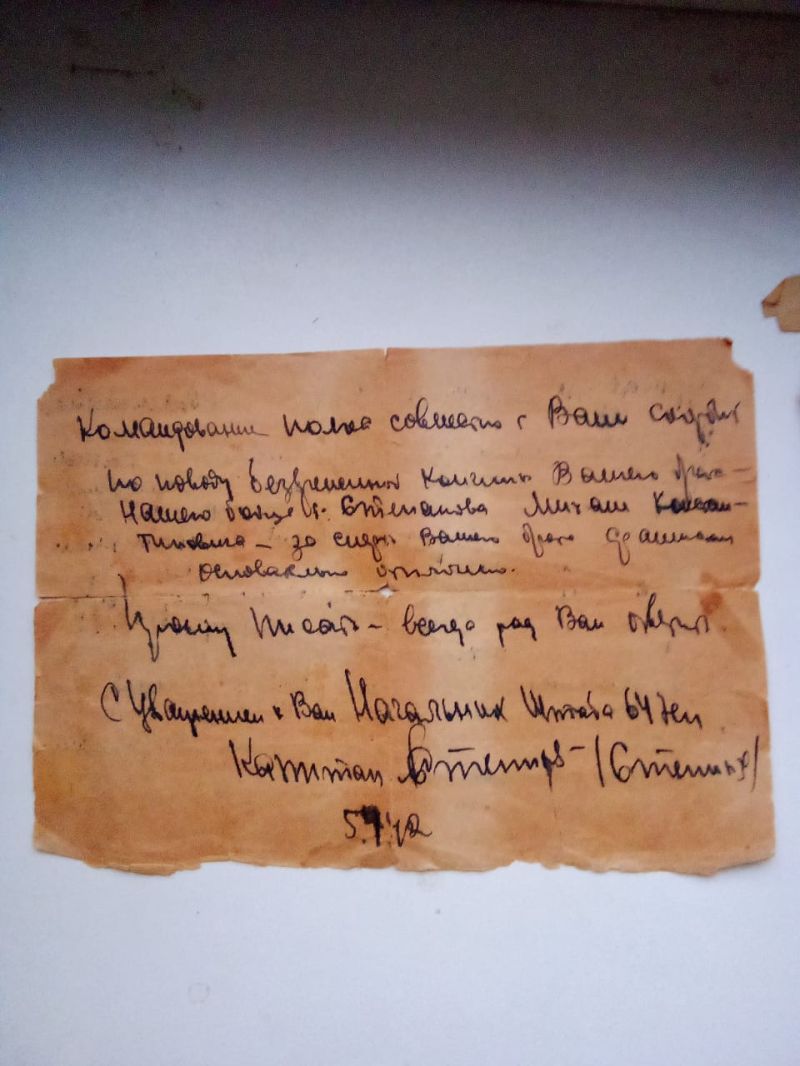 Командование полка совместно с Вами скорбит
по поводу безвременной кончины Вашего брата –
Нашего бойца т. Степанова Михаил Констан-
тиновича – за смерть Вашего брата
Прошу писать – всегда рад Вам ответить.
С уважением к Вам Начальник Штаба 64
Капитан (Степных)
42